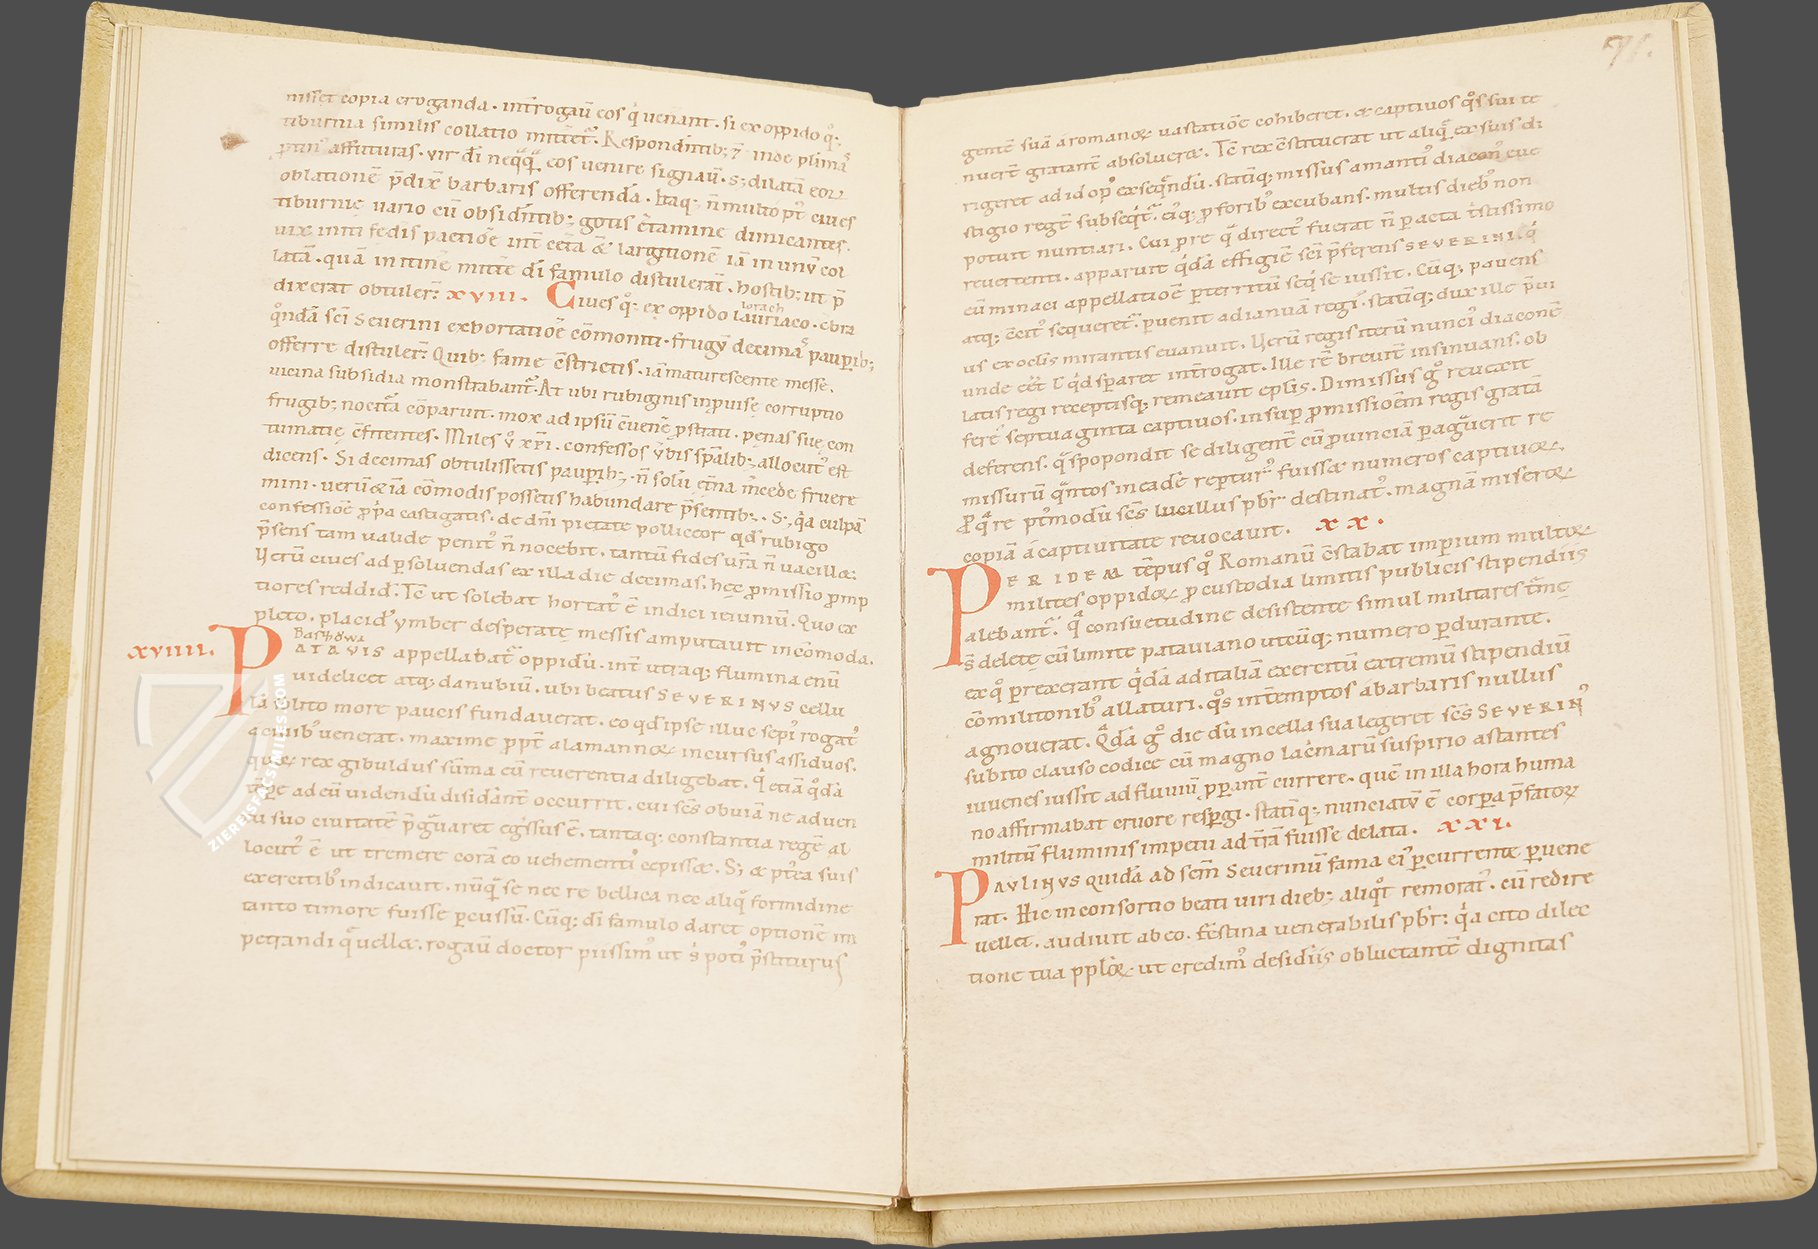 nisset copia eroganda. int̄rogaū eos q̇ uen̄ant. si ex oppido q̊;
tiburnia similis collatio mittet᷑. Respondintib; ⁊ inde plimā
affuturas. vir dī neq̄q̄ eos uenire signaū. S; dilatā eoꝝ
oblationē p̄dix̄ barbaris offerendā. Itaq; n̄ multo pꝰt ciues
tiburnię vario cū obsid̄ntib; gotis c̄tamine dimicantes.
vix initi fedis pactiōe int̄ cet̄a & largitionē iā in unū col
latā. quā in itinē mitt̄e dī famulo distulerāt. hostib; ut p̄
dixerat obtuler̄: xviii. Ciues q̊; ex oppido lauriaco. c̄bra
lorach
q̊ndā sc̄i Severini exhortatiōe cōmoniti. frugū decimas paup̱ib;
offerre distuler̄: Quib; fame c̄strictis. iā maturescente messe.
vicina subsidia monstrabant᷑. At ubi rubiginis inp̱uisę corruptio
frugib; nocit̄a cōparuit. mox ad ipsū c̄uenē ꝓstrati. penas suę con
tumatię c̄fitentes. Miles v̊ xp̄i. confessos v̄bis sp̄alib; allocutꝰ est
dicens. Si decimas obtulissetis paup̱ib; n̄ solū et̄na m̄cede fruere
mini. verū & iā cōmodis possetis habundare p̄sentib;. S; q̇a culpā
confessiōe ꝓp̱a castigatis. de dn̄i pietate polliceor qd̄ rubigo
p̄sens tam valide penitꝰ n̄ nocebit. tantū fides ur̄a n̄ vacillæ:
Verū ciues ad p̱soluendas ex illa die decimas. hęc ꝓmissio ꝓmp
tiores reddid̄. Tē ut solebat hortatꝰ ē indici ieiuniū. Quo ex
pleto. placidꝰ ymber desperatę messis amputauit incōmoda.
xviiii. Patavis appellabat᷑ oppidū. int̄ utraq; flumina enū
Bashowa
uidelicet atq; danubiū. ubi beatus Severinvs cellu
lā solito more paucis fundauerat. eo qd̄ ipse illuc sepi̇ rogatꝰ
a ciuibꝰ venerat. maxime ꝓpt̄ alamannoꝝ incursus assiduos.
quoꝝ rex gibuldus sūma cū reuerentia diligebat. q̇ etiā q̊dā
tp̱e ad eū uidendū disid̄ant̄ occurrit. cui sc̄s obuiā ne aduen
tu suo ciuitatē p̄g̊uaret eg̊ssus ē. tantaq; constantia regē al
locutꝰ ē ut tremere corā eo vehementiꝰ cepissæ. S; & pꝰt̄ea suis
exercitibꝰ indicauit. nūq̄ se nec re bellica nec aliq̊ formidine
tanto timore fuisse p̱cussū. Cūq; dī famulo daret optionē im
petrandi q̄ uellæ. rogaū doctor piissimꝰ ut s̊ potiꝰ p̄stiturus
71.
gentē suā a romanoꝝ vastatiōe cohiberet. & captiuos q̊s sui te
nuer̄t gratant̄ absoluerꝫ. Tē rex c̄stituerat ut aliq̄ ex suis di
rigeret ad id opꝰ exseq̄ndū. statīq; missus amantiꝰ diaconꝰ eue
stigio regē subseq̇t᷑. eiꝰq; ꝓ foribꝰ excubans. multis diebꝰ non
potuit nuntiari. Cui ꝓ re q̄ directꝰ fuerat n̄ p̱acta tristissimo
reuertenti. apparuit q̇dā effigiē sc̄i p̄ferens Severini. q̇
eū minaci appellatiōe p̱territū seq̇ se iussit. Cūq; pauens
atq; c̄citꝰ sequeret᷑. p̱uenit ad ianuā regiꝰ. statīq; dux ille p̄ui
us ex oclis mirantis euanuit. Verū regis iterū nunciꝰ diaconē
unde eēt ł q̇d sp̱aret int̄rogat. Ille rē breuit̄ insinuans. ob
latis regi receptisq; remeauit eplis. Dimissus g̊ reuexit
ferē septuaginta captiuos. insup̱ ꝓmissiōem regis gratā
deferens. q̄ spopondit se diligent̄ cū ꝓuinciā p̱ag̊uerit re
missurū q̄ntos in eadē rep̱turꝰ fuissæ numeros captiuoꝝ.
P̱ q̄ re pꝰtmodū sc̄s lucillus pbr̄ destinatꝰ. magnā miseroꝝ
copiā a captiuitate reuocauit. xx.
Per idem tēpus q̊ Romanū c̄stabat imp̱ium multoꝝ
milites oppidoꝝ ꝓ custodia limitis publicis stipendiis
alebant᷑. q̄ consuetudine desistente simul militares t̄mę
s̄ deletę cū limite patauiano utcūq; numero p̱durante.
ex q̊ p̱rexerant q̇dā ad italiā exercitū extremū stipendiū
cōmilitonibꝰ allaturi. q̊s in̄t emptos a barbaris nullus
agnouerat. Q̄dā g̊ die dū in cella sua legeret sc̄s Severinꝰ
subito clauso codice cū magno lac̊marū suspirio astantes
iuuenes iussit ad fluuiū ꝓp̱ant̄ currere. quē in illa hora huma
no affirmabat cruore resp̱gi. Statīq; nunciatū ē corp̱a p̄fatoꝝ
militū fluminis impetu ad t̄rā fuisse delata. xxi.
Paulinvs quidā ad scm̄ Severinū fama eiꝰ p̱currente p̱uene
rat. Hic in consortio beati uiri dieb; aliq̊t remoratꝰ. cū redire
vellet. audiuit ab eo. Festina venerabilis pbr̄: q̇a cito dilec
tione tua pploꝝ. ut credimꝰ desidiis obluctantē dignitas